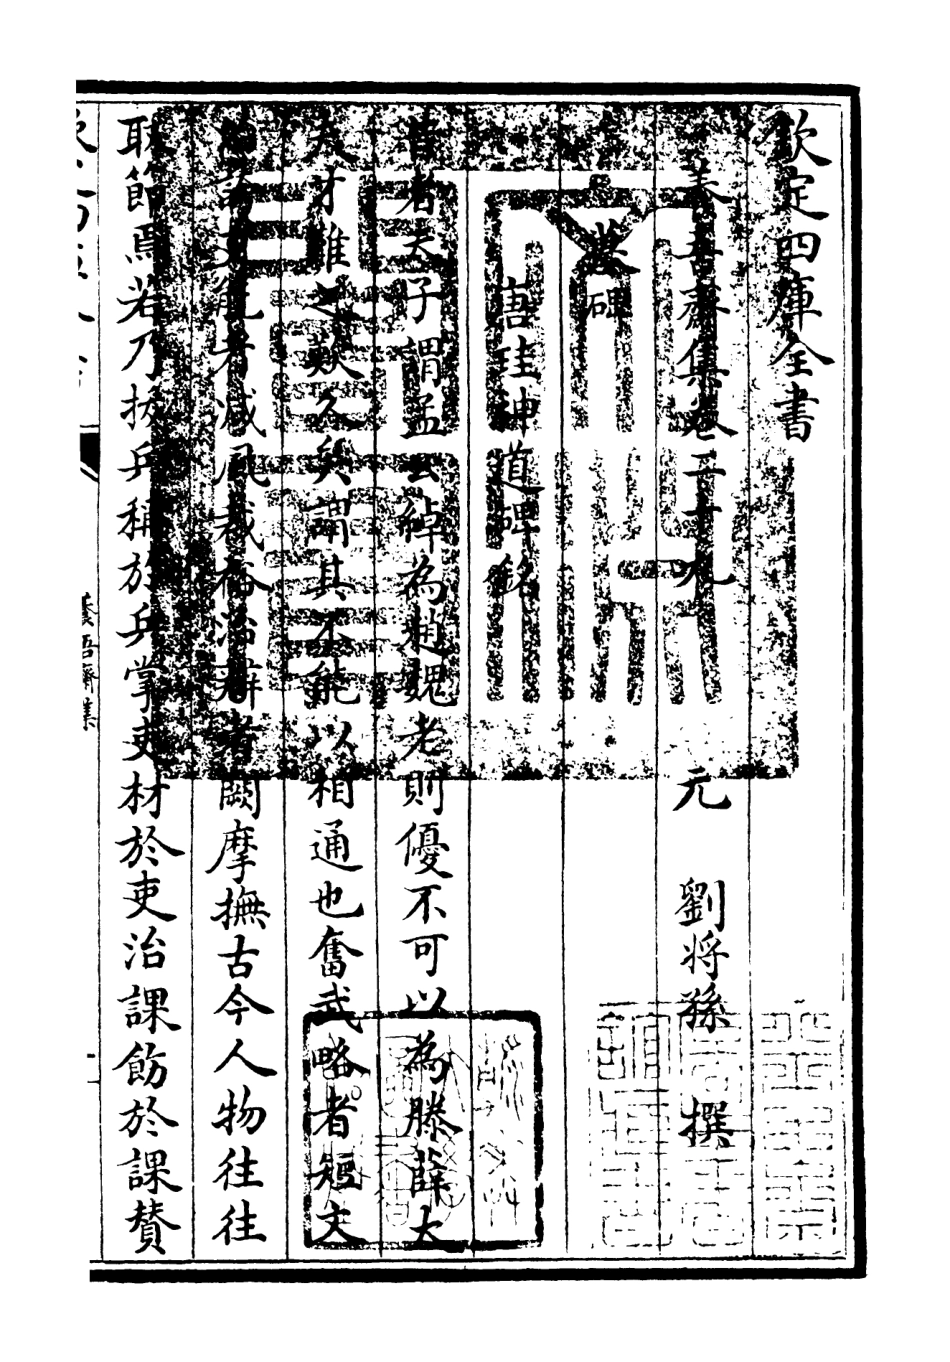 欽定四庫全書
養吾齋集卷二十九
元 劉將孫 撰
墓碑
唐珪神道碑銘
昔者夫子謂孟公綽為趙魏老則優不可以為滕薛大
夫才難之歎久矣謂其不能以相通也奮武略者短文
能者減風裁裕治辯者闕摩撫古今人物往往
耿節焉若乃扳兵稱於兵掌吏材於吏治課飭於課贊
養吾齋集